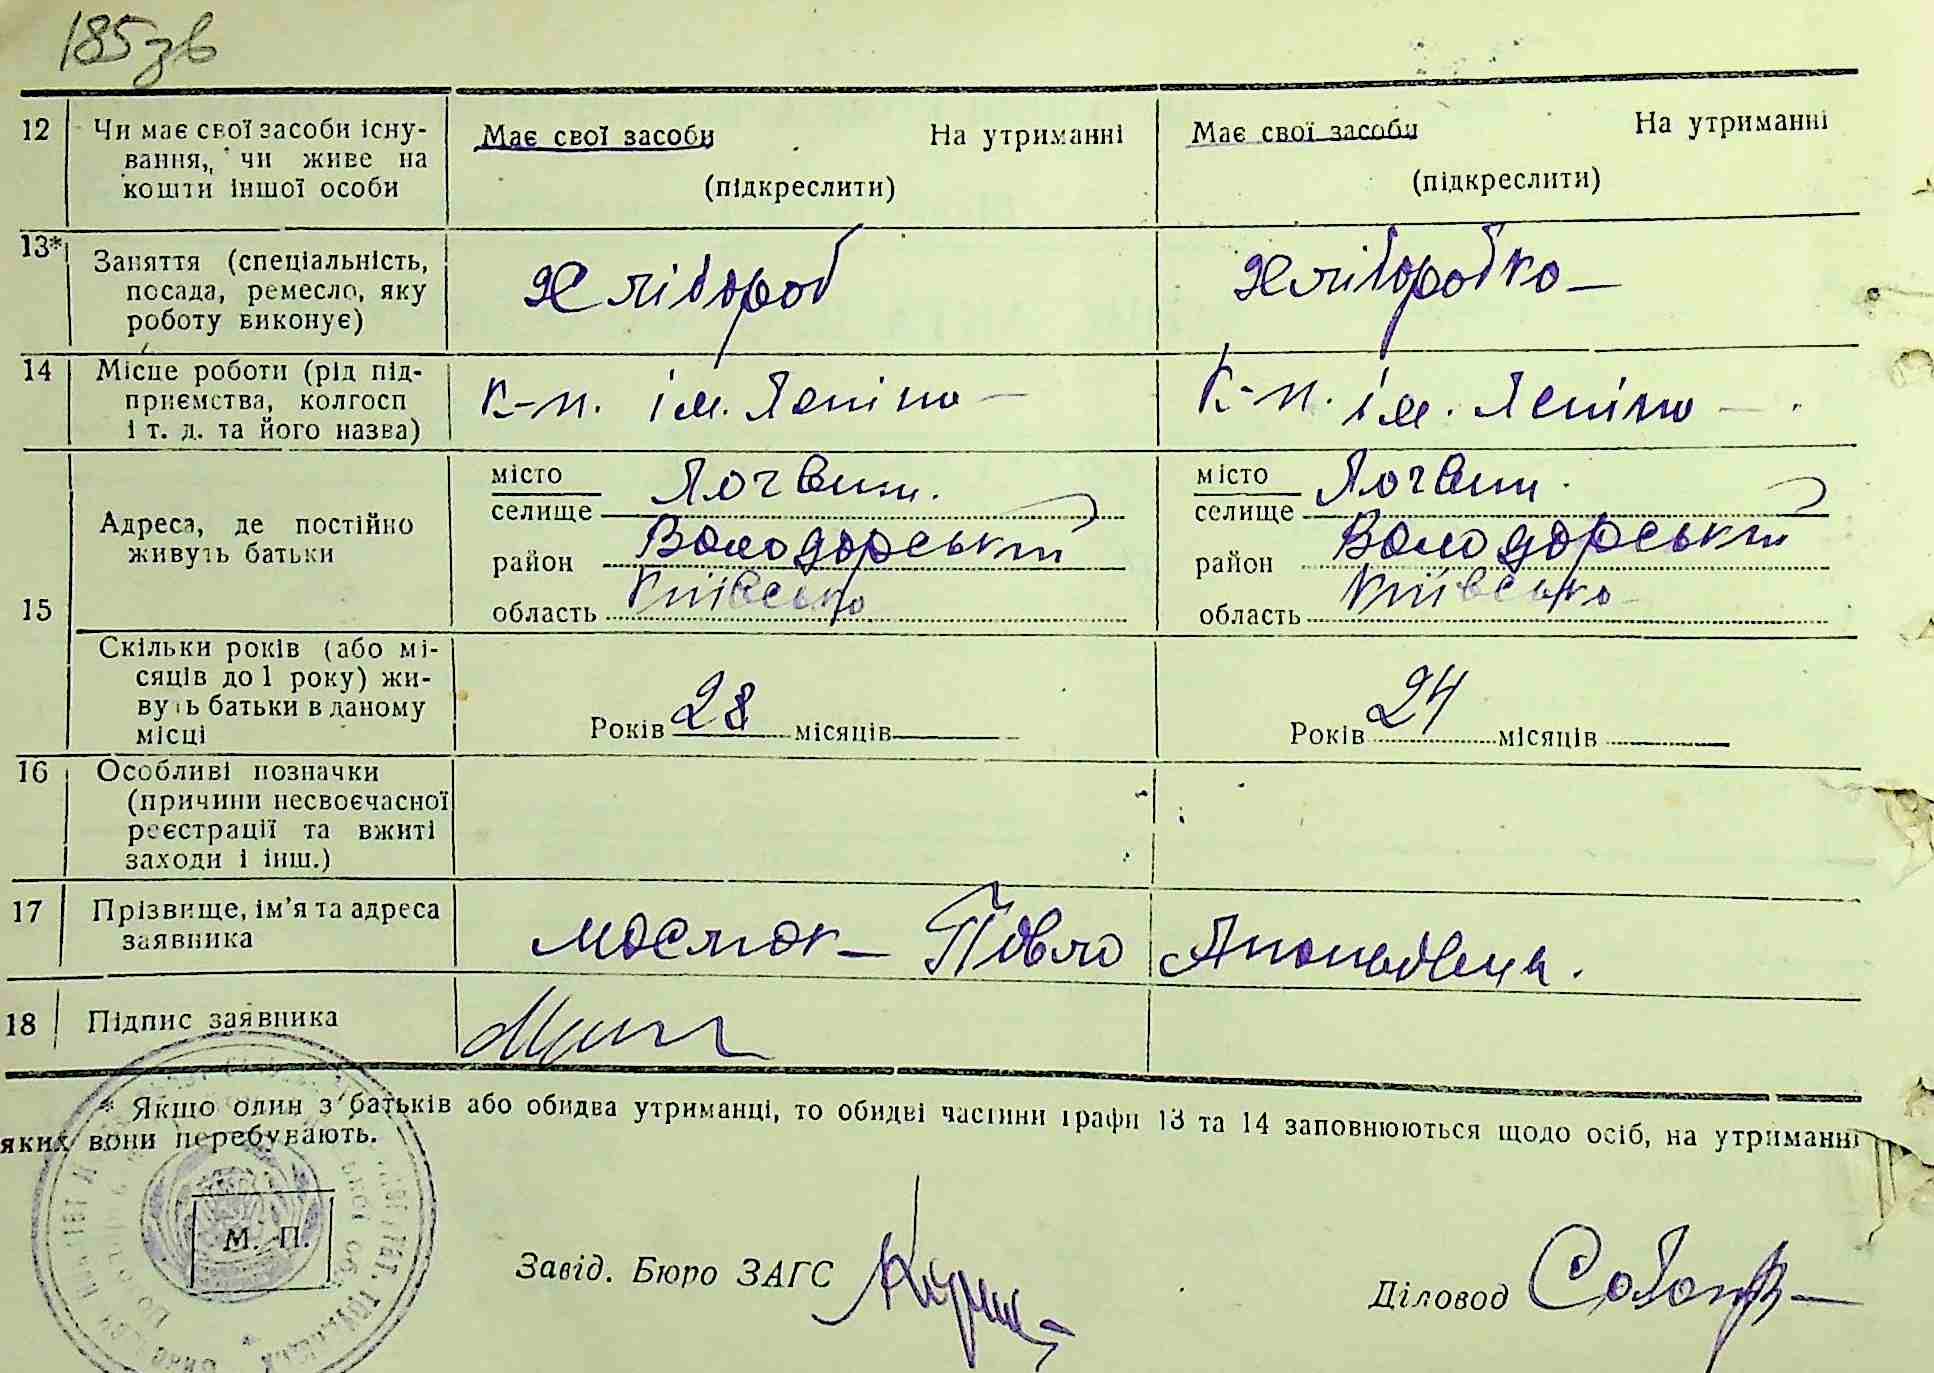 185зв
12 Чи має свої засоби існу-
вання, чи живе на
кошти іншої особи
Має свої засоби На утриманні
(підкреслити)
Має свої засоби На утриманні
(підкреслити)
13* Заняття (спеціальність,
посада, ремесло, яку
роботу виконує)
Хлібороб
Хліборобка
14 Місце роботи (рід під-
приємства, колгосп
і т. д. та його назва)
К-п. ім. Леніна
К-п. ім. Леніна
15
Адреса, де постійно
живуть батьки
місто
селище Логвин.
район Володарський
область Київська
місто
селище Логвин.
район Володарський
область Київська
Скільки років (або мі-
сяців до 1 року) жи-
вуть батьки в даному
місці
Років 28 місяців
Років 24 місяців
16 Особливі позначки
(причини несвоєчасної
реєстрації та вжиті
заходи і інш.)
17 Прізвище, ім'я та адреса
заявника
Павло
18 Підпис заявника
* Якщо один з батьків або обидва утриманці, то обидві частини графи 13 та 14 заповнюються щодо осіб, на утриманні
яких вони перебувають.
М. П.
Завід. Бюро ЗАГС
Діловод